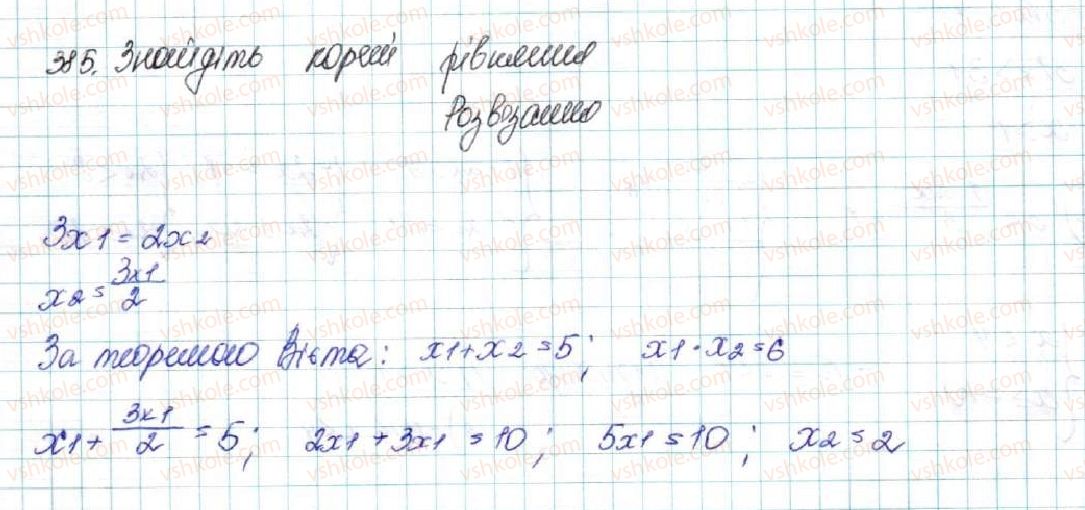 385. Знайдіть корені рівняння
Розвозанно
3x1 = 2x2
x2 = 3x1/2
За теоремою Вієта: x1 + x2 = 5; x1 · x2 = 6
x1 + 3x1/2 = 5; 2x1 + 3x1 = 10; 5x1 = 10; x2 = 2